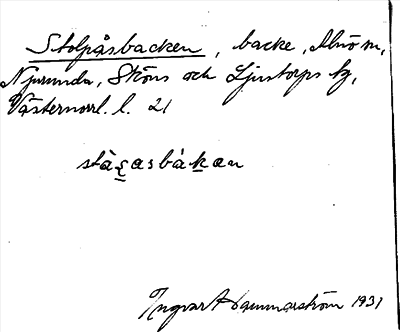 Stolpåsbacken, backe, Alnö sn,
Njurunda, Sköns och Ljustorps tg,
Västernorrl. l. 21
Ingvar Hammarström 1931